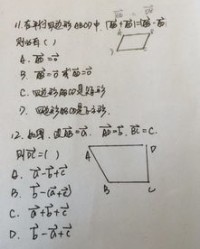 11. 在平行四边形ABCD中, |AB⃗+AD⃗|=|AB⃗-AD⃗|
则必有( )
A. AD⃗=0⃗
B. AB⃗=0⃗ 或 AD⃗=0⃗
C. 四边形ABCD是矩形
D. 四边形ABCD是正方形
12. 如图, 设AB⃗=a⃗, AD⃗=b⃗, BC⃗=c⃗.
则DC⃗=( )
A. a⃗-b⃗+c⃗
B. b⃗-(a⃗+c⃗)
C. a⃗+b⃗+c⃗
D. b⃗-a⃗+c⃗
A
D
B
C